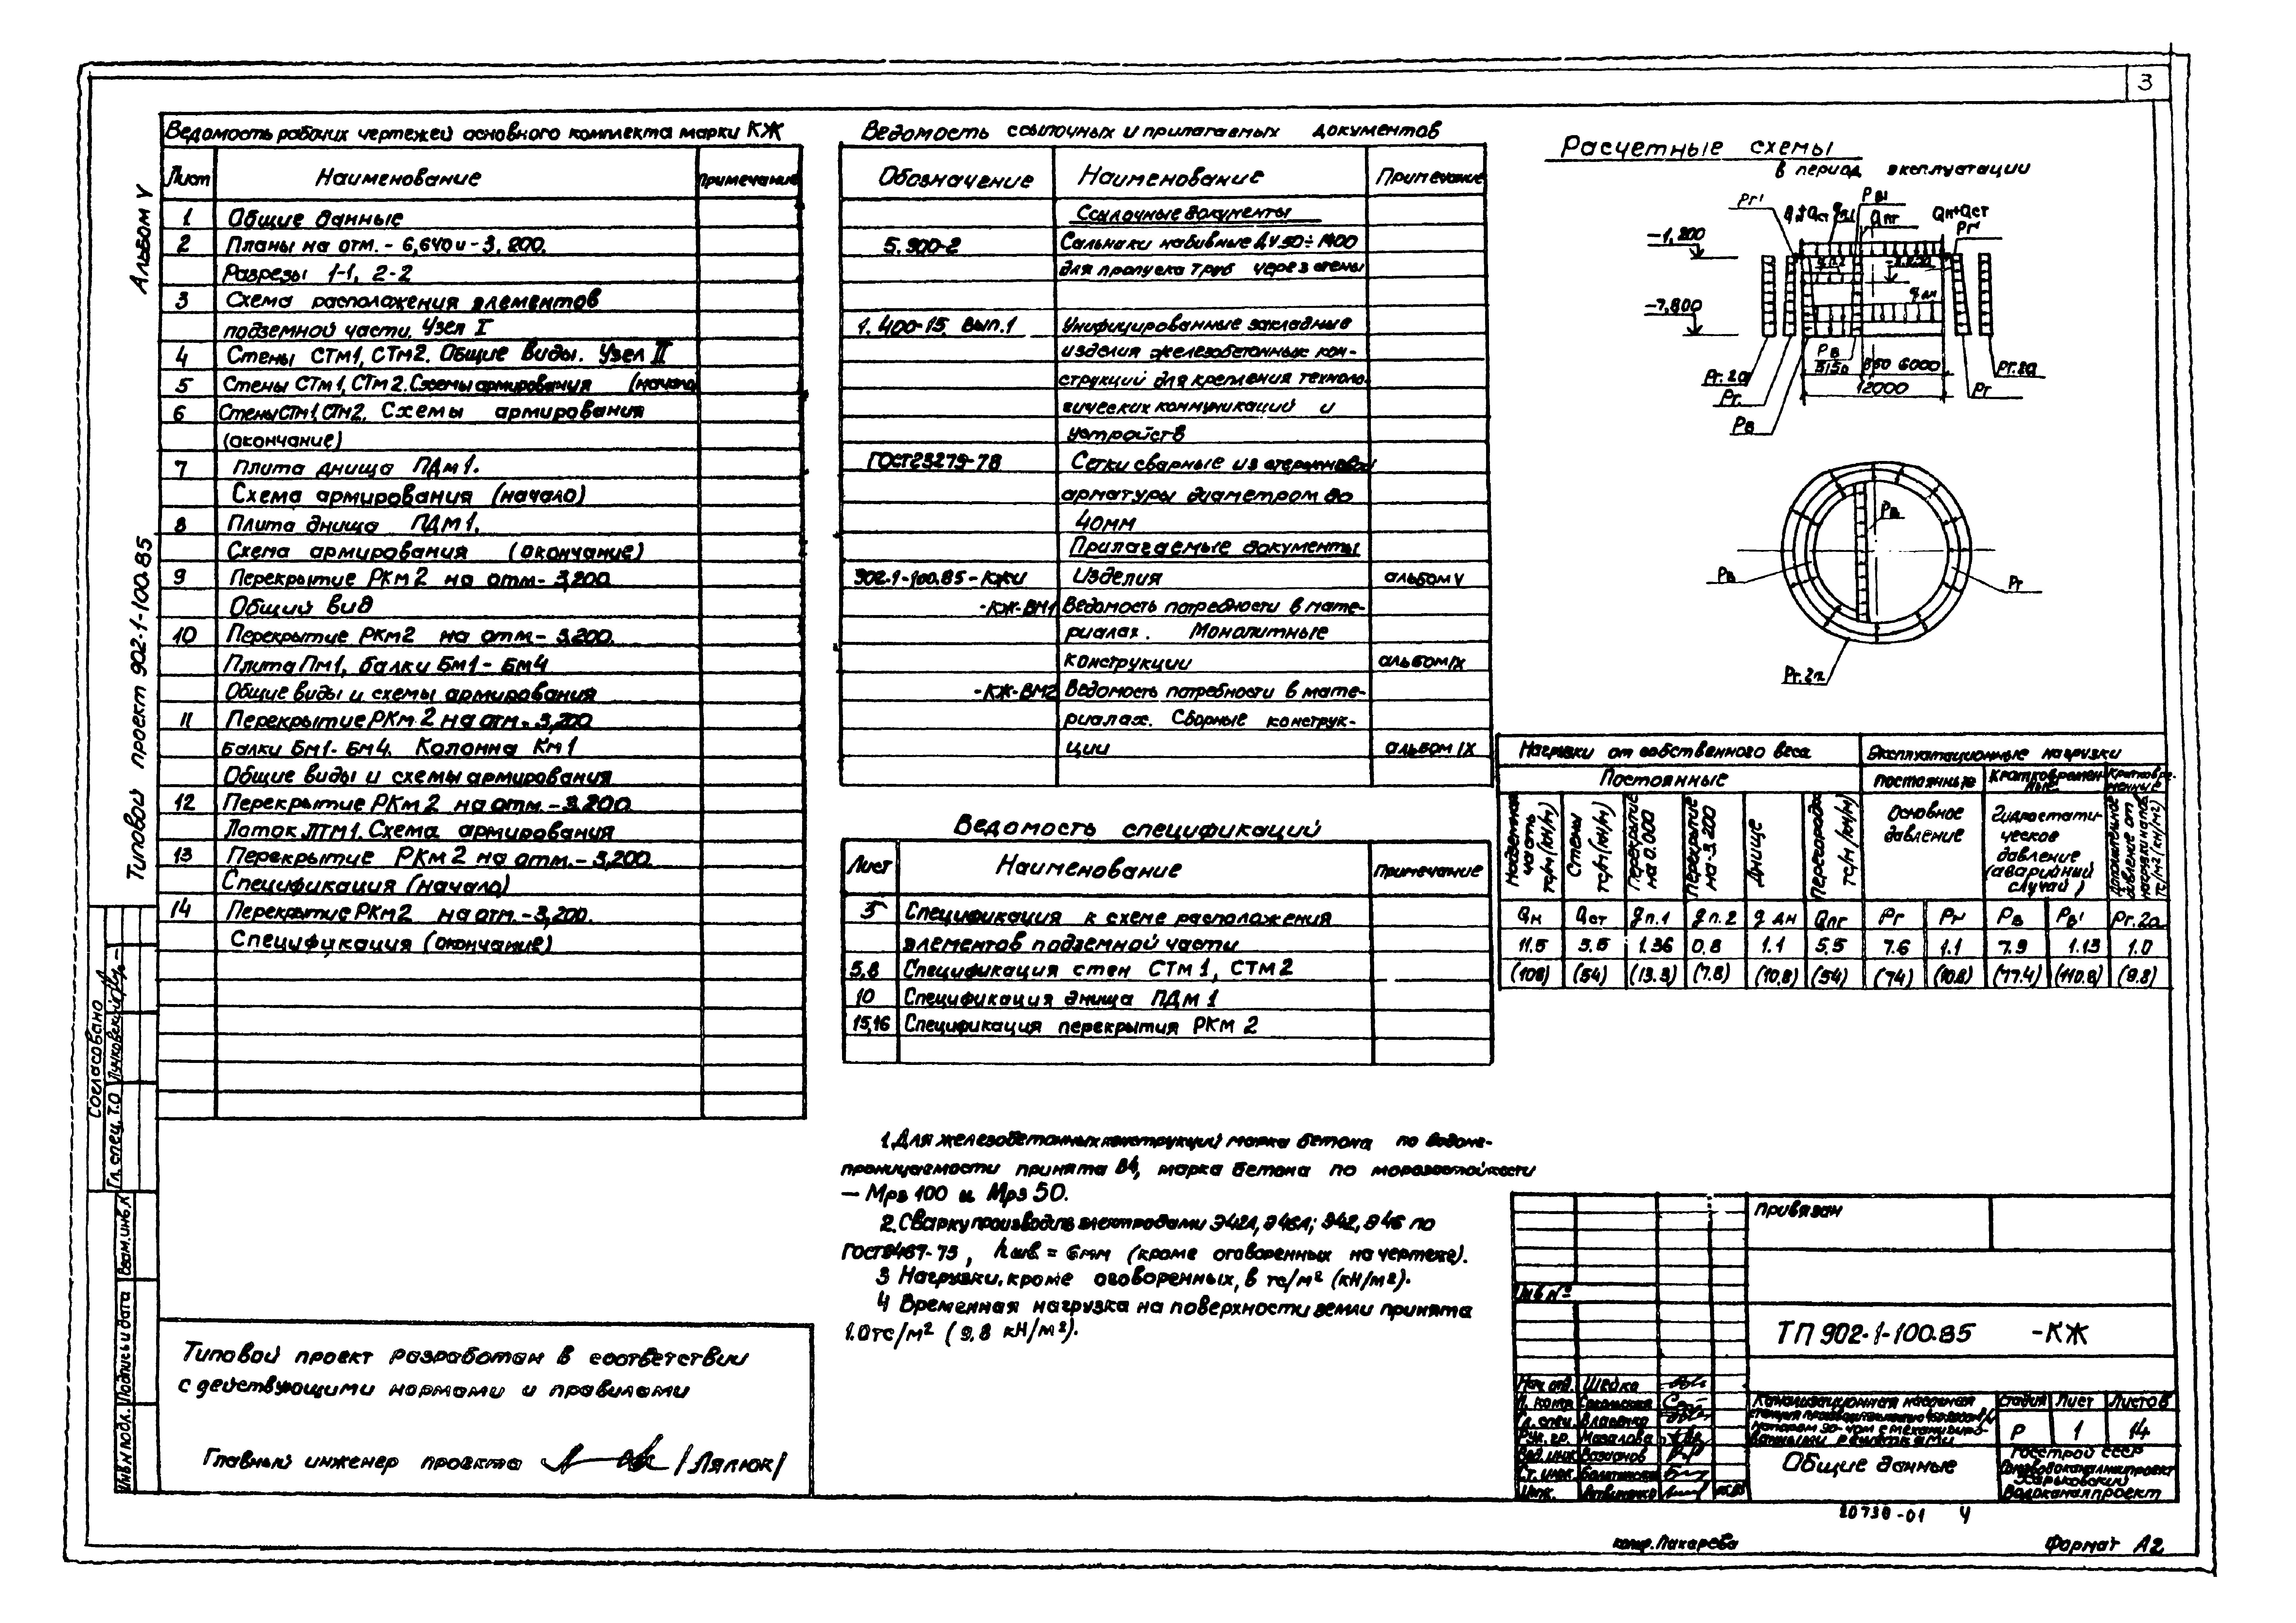 3
Альбом V
Типовой проект 902-1-100.85
Ведомость рабочих чертежей основного комплекта марки КЖ
Лист Наименование Примечание
1 Общие данные
2 Планы на отм. - 6,640 и - 3,200.
Разрезы 1-1, 2-2
3 Схема расположения элементов
подземной части. Узел I
4 Стены СТм1, СТм2. Общие виды. Узел II
5 Стены СТм1, СТм2. Схемы армирования (начало)
6 Стены СТм1, СТм2. Схемы армирования
(окончание)
7 Плита днища ПДм1.
Схема армирования (начало)
8 Плита днища ПДм1.
Схема армирования (окончание)
9 Перекрытие РКм2 на отм - 3,200
Общий вид
10 Перекрытие РКм2 на отм - 3,200.
Плита Пм1, балки Бм1- Бм4
Общие виды и схемы армирования
11 Перекрытие РКм2 на отм. - 3,200
Балки Бм1- Бм4. Колонна Км1
Общие виды и схемы армирования
12 Перекрытие РКм2 на отм. - 3.200
Лоток ЛТм1. Схема армирования
13 Перекрытие РКм2 на отм. - 3,200.
Спецификация (начало)
14 Перекрытие РКм2 на отм. - 3,200.
Спецификация (окончание)
Ведомость ссылочных и прилагаемых документов
Обозначение Наименование Примечание
Ссылочные документы
5.900-2 Сальники набивные ДУ 50÷1400
для пропуска труб через стены
1.400-15. Вып.1 Унифицированные закладные
изделия железобетонных кон-
струкций для крепления техноло-
гических коммуникаций и
устройств
ГОСТ 23279-78 Сетки сварные из стержневой
арматуры диаметром до
40мм
Прилагаемые документы
902-1-100.85-КЖИ Изделия альбом V
-КЖ-ВМ1 Ведомость потребности в мате-
риалах. Монолитные
конструкции альбом IX
-КЖ-ВМ2 Ведомость потребности в мате-
риалах. Сборные конструк-
ции альбом IX
Ведомость спецификаций
Лист Наименование Примечание
3 Спецификация к схеме расположения
элементов подземной части
5,8 Спецификация стен СТм1, СТм2
10 Спецификация днища ПДм1
15,16 Спецификация перекрытия РКм2
Расчетные схемы
в период эксплуатации
Рг' Qн+Qст qп1 Рв' Qпг Qн+Qст Рг'
-1,200
-7,800
qп.2 qдн
Рв
5150 850 6000
12000
Рг.2а Рг Рв Рг Рг.2а
Рв
Рв Рг
Рг.2п
Нагрузки от собственного веса Эксплуатационные нагрузки
Постоянные Постоянные Кратковремен-ные Кратковре-менные
Надземная часть тс/м (кН/м)
Стены тс/м (кН/м)
Перекрытие на 0.000
Перекрытие на -3.200
Днище
Перегородка тс/м (кН/м)
Основное давление
Гидростати-ческое давление (аварийный случай)
Дополнительное давление от нагрузки на пов. тс/м2 (кН/м2)
Qн Qст qп.1 qп.2 qдн Qпг Рг Рг' Рв Рв' Рг.2а
11.5 5.5 1.36 0.8 1.1 5.5 7.6 1.1 7.9 1.13 1.0
(108) (54) (13.3) (7.8) (10,8) (54) (74) (10.8) (77.4) (110.8) (9.8)
1. Для железобетонных конструкций марка бетона по водоне-
проницаемости принята В4, марка бетона по морозостойкости
- Мрз 100 и Мрз 50.
2. Сварку производить электродами Э42А, Э46А; Э42, Э46 по
ГОСТ 9467-75, hшв = 6мм (кроме оговоренных на чертеже).
3 Нагрузки, кроме оговоренных, в тс/м² (кН/м²).
4 Временная нагрузка на поверхности земли принята
1.0 тс/м² (9,8 кН/м²).
Типовой проект разработан в соответствии
с действующими нормами и правилами
Главный инженер проекта /Лялюк/
Согласовано
Гл. спец. Т.О
Инв N подл. Подпись и дата Взам. инв. N
Привязан
Инв N°
ТП 902-1-100.85 -КЖ
Нач. отд. Шейко
Н. контр
Гл. спец. Власенко
Рук. гр. Мозалова
Вед. инж.
Ст. инж.
Инж. Литвиненко
Канализационная насосная
станция производительностью
напором 30-40м с механизиро-
ванными решетками
Стадия Лист Листов
Р 1 14
Общие данные
Госстрой СССР
Союзводоканалниипроект
Харьковский
Водоканалпроект
20730-01 4
копир. Пихарева
Формат А2